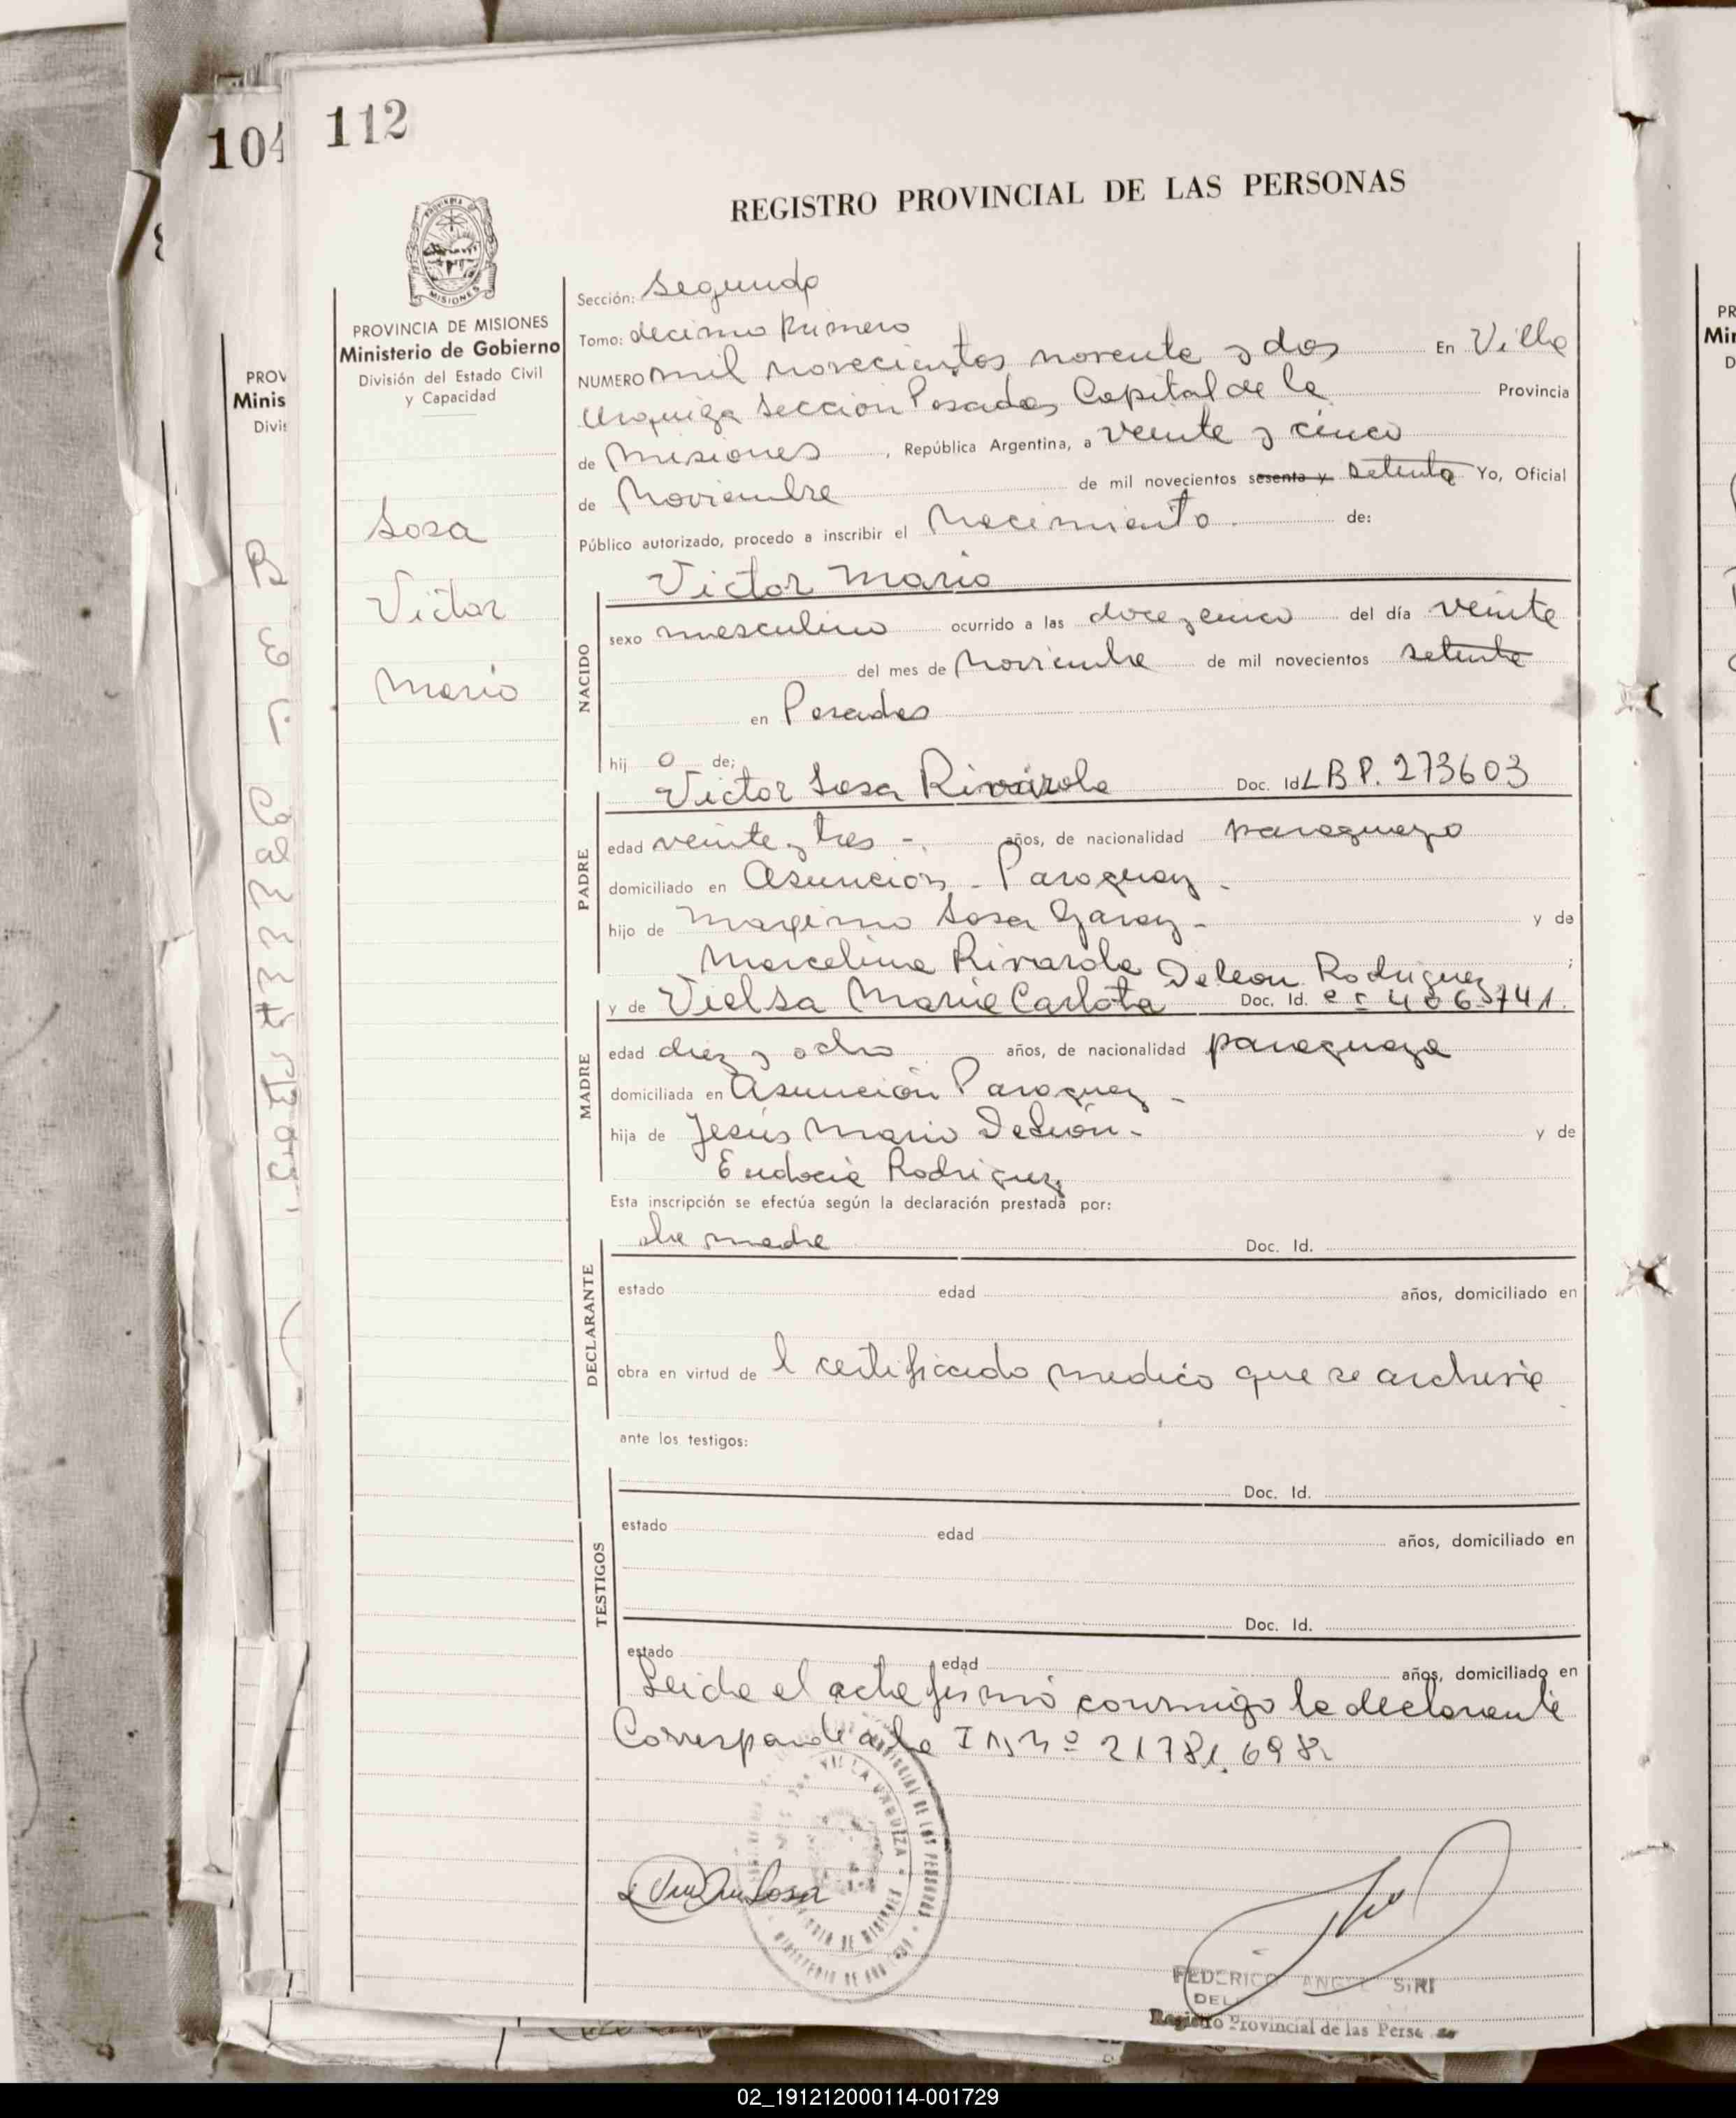 104
112
REGISTRO PROVINCIAL DE LAS PERSONAS
MISIONES
PROVINCIA DE MISIONES
Ministerio de Gobierno
División del Estado Civil
y Capacidad
Sosa
Victor
Mario
Sección: Segundo
Tomo: decimo primero
NUMERO mil novecientos noventa y dos En Villa
Urquiza Seccion Posadas Capital de la Provincia
de Misiones, República Argentina, a veinte y cinco
de Noviembre de mil novecientos sesenta y setenta Yo, Oficial
Público autorizado, procedo a inscribir el Nacimiento. de:
Victor Mario
NACIDO
sexo masculino ocurrido a las doce y cinco del día veinte
del mes de Noviembre de mil novecientos setenta
en Posadas
hij o de;
Victor Sosa Rivarola Doc. Id LBP. 273603
PADRE
edad veinte y tres -. años, de nacionalidad paraguayo
domiciliado en Asunción - Paraguay.
hijo de Maximo Sosa Garay - y de
Marcelina Rivarola ;
Deleon Rodriguez
y de Vielsa Maria Carlota Doc. Id.
MADRE
edad diez y ocho años, de nacionalidad paraguaya
domiciliada en Asunción Paraguay -
hija de Jesús Mario DeLeón - y de
Eudocia Rodriguez
Esta inscripción se efectúa según la declaración prestada por:
madre Doc. Id.
DECLARANTE
estado edad años, domiciliado en
obra en virtud de l certificado medico que se archiva
ante los testigos:
Doc. Id.
TESTIGOS
estado edad años, domiciliado en
Doc. Id.
estado edad años, domiciliado en
Leida el acta firmó conmigo la declarante
Corresponde a la I N, Nº 21781.698
Sosa
FEDERICO ANGEL SIRI
DEL
Registro Provincial de las Pers
02_191212000114-001729